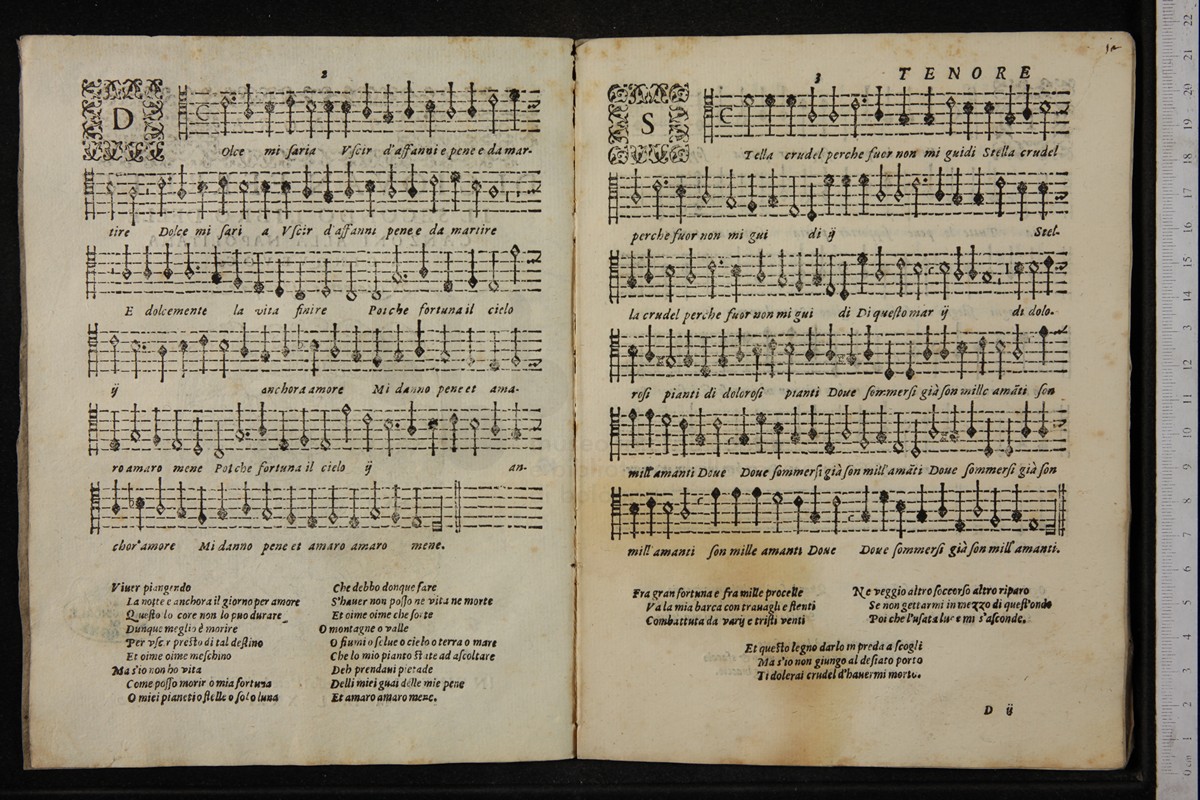 2
D
Olce mi saria Vscir d'affanni e pene e da mar-
tire Dolce mi sari a Vscir d'affanni pene e da martire
E dolcemente la vita finire Poiche fortuna il cielo
ij anchora amore Mi danno pene et ama-
ro amaro mene Poiche fortuna il cielo ij an-
chor'amore Mi danno pene et amaro amaro mene.
Viuer piangendo
La notte e anchora il giorno per amore
Questo lo core non lo puo durare
Dunque meglio è morire
Per vscir presto di tal destino
Et oime oime meschino
Ma s'io non ho vita
Come posso morir o mia fortuna
O miei pianeti o stelle o sol o luna
Che debbo donque fare
S'hauer non posso ne vita ne morte
Et oime oime che sorte
O montagne o valle
O fiumi o selue o cielo o terra o mare
Che lo mio pianto state ad ascoltare
Deh prendaui pietade
Delli miei guai delle mie pene
Et amaro amaro mene.
3 TENORE
S
Tella crudel perche fuor non mi guidi Stella crudel
perche fuor non mi gui di ij Stel-
la crudel perche fuor non mi gui di Di questo mar ij di dolo-
rosi pianti di dolorosi pianti Doue sommersi già son mille amāti son
mill'amanti Doue Doue sommersi già son mill'amāti Doue sommersi già son
mill'amanti son mille amanti Doue Doue sommersi già son mill'amanti.
Fra gran fortuna e fra mille procelle
Va la mia barca con trauagli e stenti
Combattuta da varij e tristi venti
Ne veggio altro soccorso altro riparo
Se non gettarmi in mezzo di quest'onde
Poi che l'usata luce mi s'asconde.
Et questo legno darlo in preda a scogli
Ma s'io non giungo al desiato porto
Ti dolerai crudel d'hauermi morto.
D ij